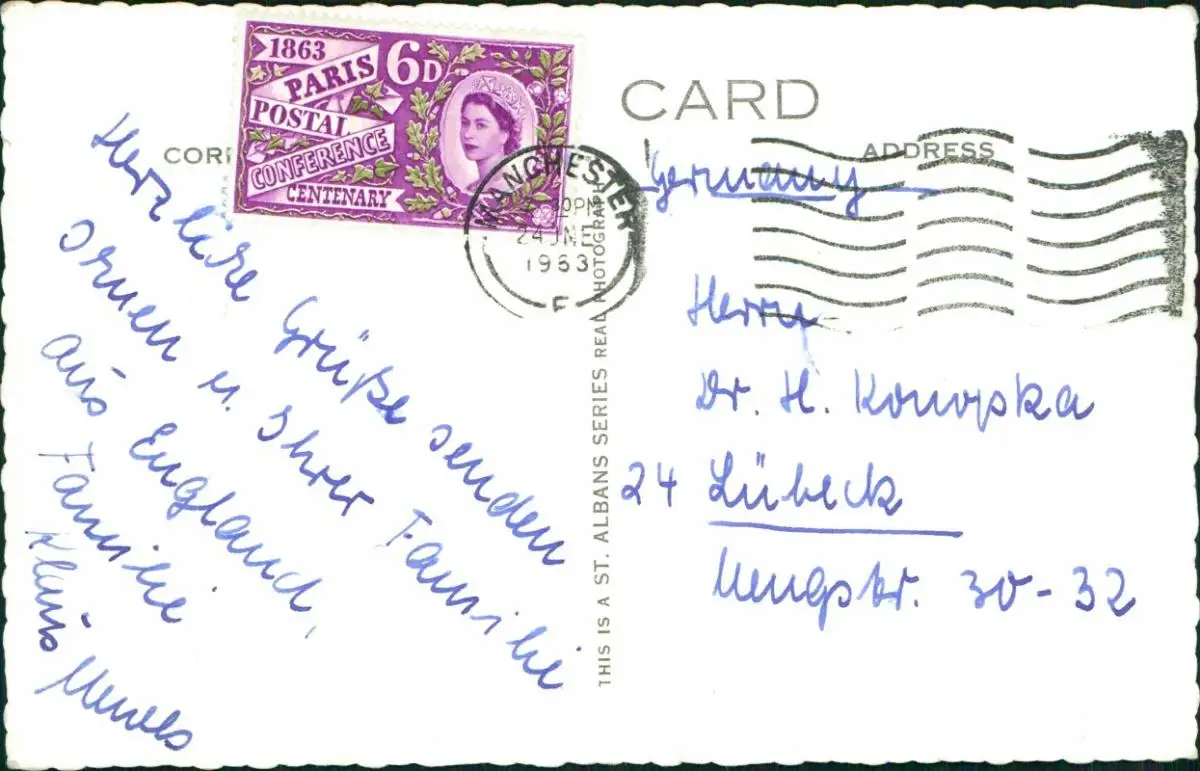 1863
PARIS
POSTAL
CONFERENCE
CENTENARY
6D
CARD
CORR
ADDRESS
MANCHESTER
30PM
24 JNE
1963
F
THIS IS A ST. ALBANS SERIES REAL PHOTOGRAPH
Herzliche Grüße senden
Ihnen u. Ihrer Familie
aus England,
Familie
Klaus
Germany
Herrn
Dr. H. Konopka
24 Lübeck
Mengstr. 30-32